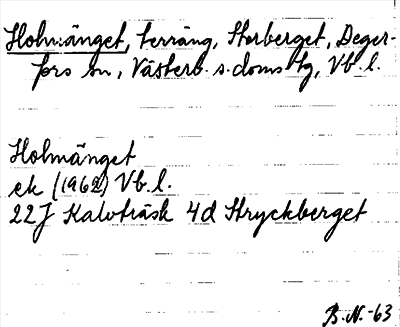 Holmänget, terräng, Storberget, Deger-
fors sn, Västerb. s. doms tg, Vb. l.
Holmänget
ek (1962) Vb. l.
22J Kalvträsk 4d Stryckberget
B. N. -63